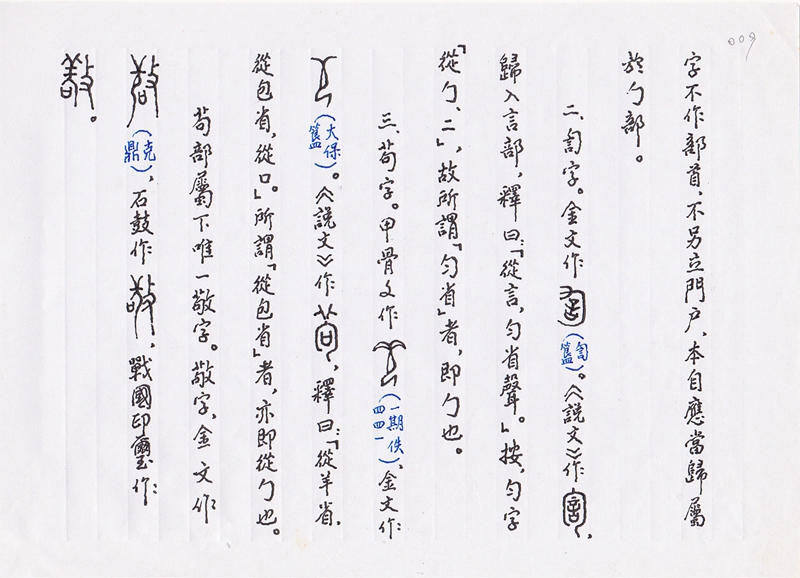 009
字不作部首、不另立門户、本自應當歸屬
於勹部。
二、訇字。金文作（訇簋）。《説文》作，
歸入言部，釋曰：「從言，勻省聲。」按，勻字
「從勹、二」，故所謂「勻省」者，即勹也。
三、茍字。甲骨文作（一期佚四四一）、金文作：
（大保簋）。《説文》作，釋曰：「從羊省，
從包省，從口。」所謂「從包省」者，亦即從勹也。
茍部屬下唯一敬字。敬字，金文作
（克鼎），石鼓作，戰國印璽作：
。